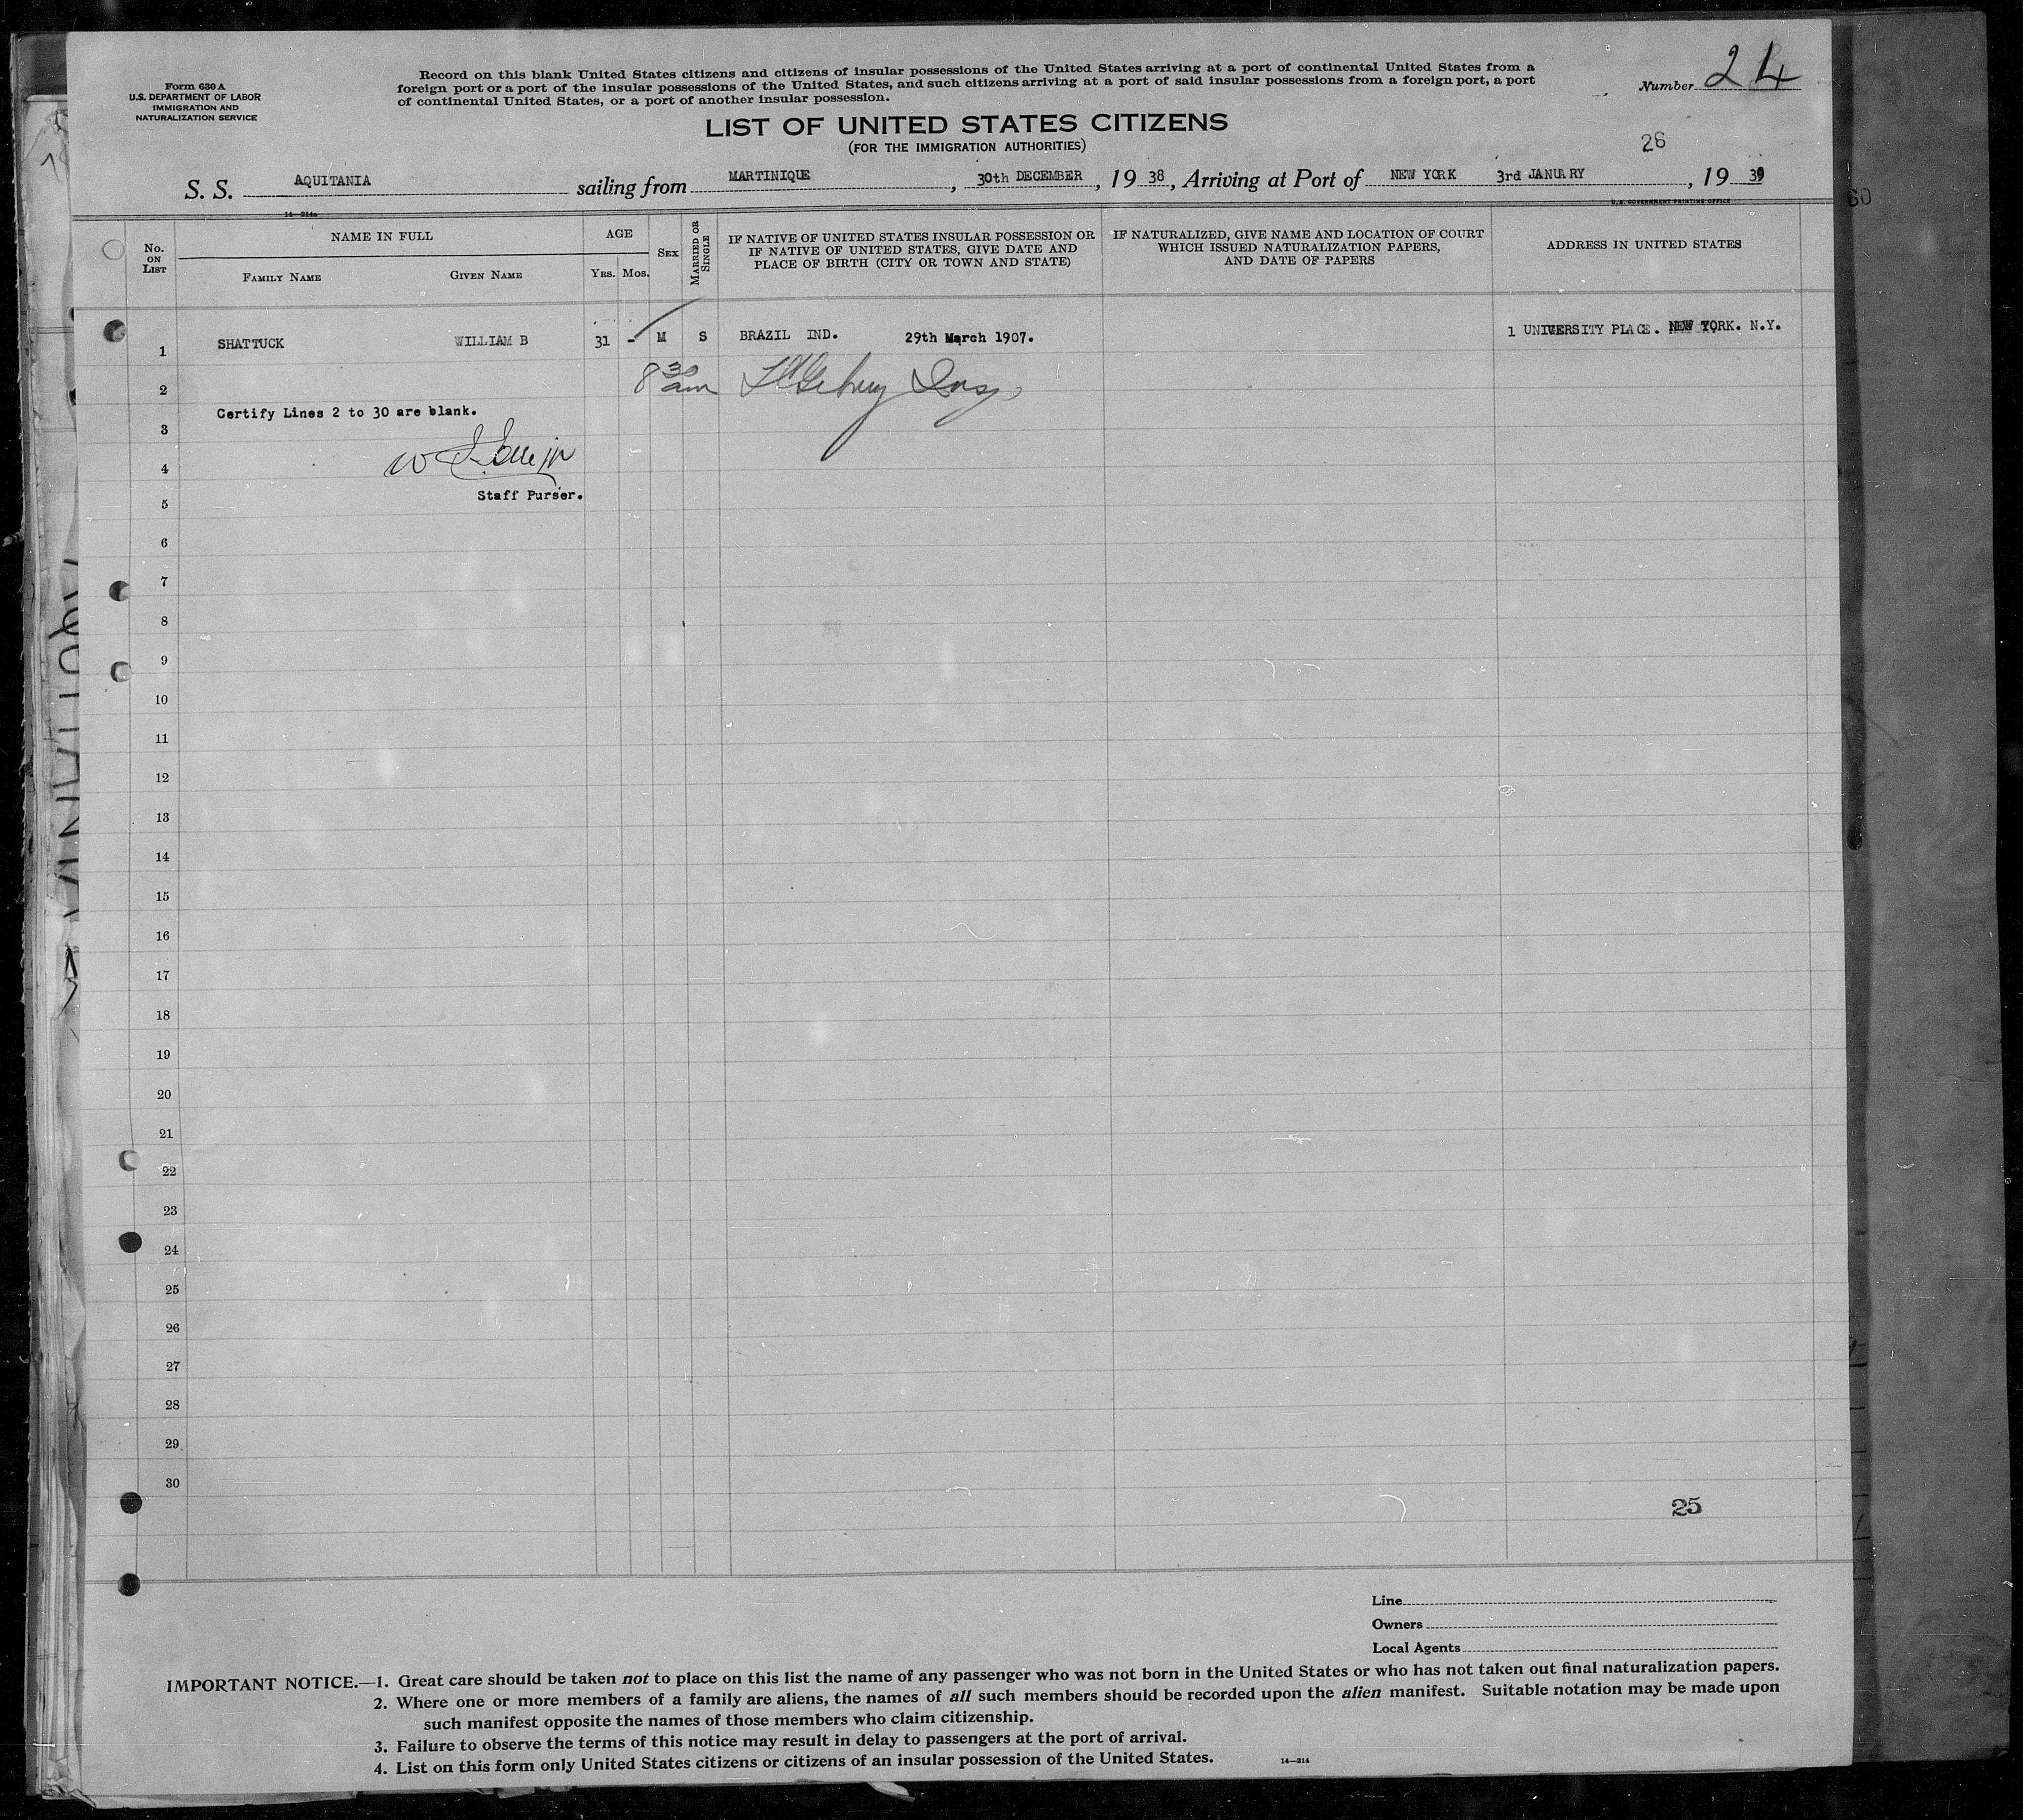 Form 630 A
U.S. DEPARTMENT OF LABOR
IMMIGRATION AND
NATURALIZATION SERVICE
Record on this blank United States citizens and citizens of insular possessions of the United States arriving at a port of continental United States from a
foreign port or a port of the insular possessions of the United States, and such citizens arriving at a port of said insular possessions from a foreign port, a port
of continental United States, or a port of another insular possession.
Number 24
LIST OF UNITED STATES CITIZENS
(FOR THE IMMIGRATION AUTHORITIES)
26
S. S. AQUITANIA sailing from MARTINIQUE, 30th DECEMBER, 19 38, Arriving at Port of NEW YORK 3rd JANUARY, 19 39
14—214a
U.S. GOVERNMENT PRINTING OFFICE
60
No. ON LIST
NAME IN FULL
FAMILY NAME GIVEN NAME
AGE
YRS. MOS.
SEX
MARRIED OR SINGLE
IF NATIVE OF UNITED STATES INSULAR POSSESSION OR
IF NATIVE OF UNITED STATES, GIVE DATE AND
PLACE OF BIRTH (CITY OR TOWN AND STATE)
IF NATURALIZED, GIVE NAME AND LOCATION OF COURT
WHICH ISSUED NATURALIZATION PAPERS,
AND DATE OF PAPERS
ADDRESS IN UNITED STATES
1 SHATTUCK WILLIAM B 31 - M S BRAZIL IND. 29th March 1907. 1 UNIVERSITY PLACE. NEW YORK. N.Y.
2 8 30 am
Certify Lines 2 to 30 are blank.
3
4
Staff Purser.
5
6
7
8
9
10
11
12
13
14
15
16
17
18
19
20
21
22
23
24
25
26
27
28
29
30
25
Line
Owners
Local Agents
IMPORTANT NOTICE.—1. Great care should be taken not to place on this list the name of any passenger who was not born in the United States or who has not taken out final naturalization papers.
2. Where one or more members of a family are aliens, the names of all such members should be recorded upon the alien manifest. Suitable notation may be made upon
such manifest opposite the names of those members who claim citizenship.
3. Failure to observe the terms of this notice may result in delay to passengers at the port of arrival.
4. List on this form only United States citizens or citizens of an insular possession of the United States.
14—214
AQUITANIA